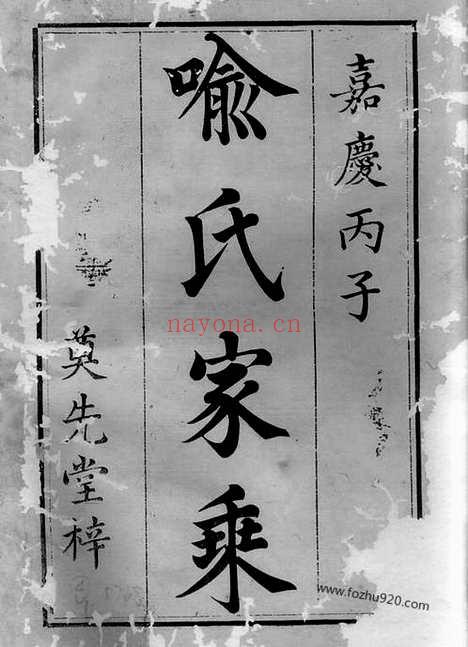 嘉慶丙子
喻氏家乗
奠先堂梓
nayona.cn
www.fozhu920.com